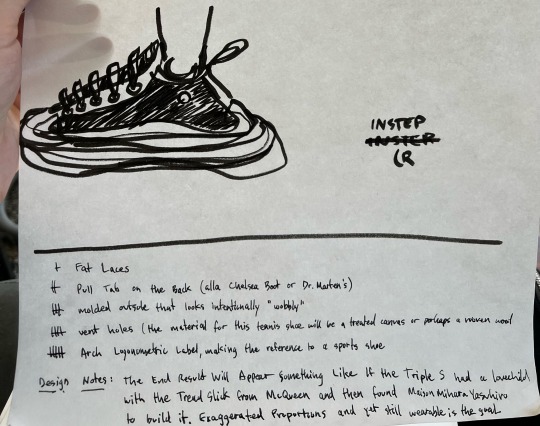 INSTEP
INSTER
LR
Fat Laces
Pull Tab on the Back (alla Chelsea Boot or Dr. Marten's)
molded outside that looks intentionally "wobbly"
vent holes (the material for this tennis shoe will be a treated canvas or perhaps a woven wool
Arch Logonometric Label, making the reference to a sports shoe
Design Notes: The End Result Will Appear Something Like If the Triple S had a lovechild
with the Tread Slick from McQueen and then found Maison Mihara Yasuhiro
to build it. Exaggerated Proportions and yet still wearable is the goal